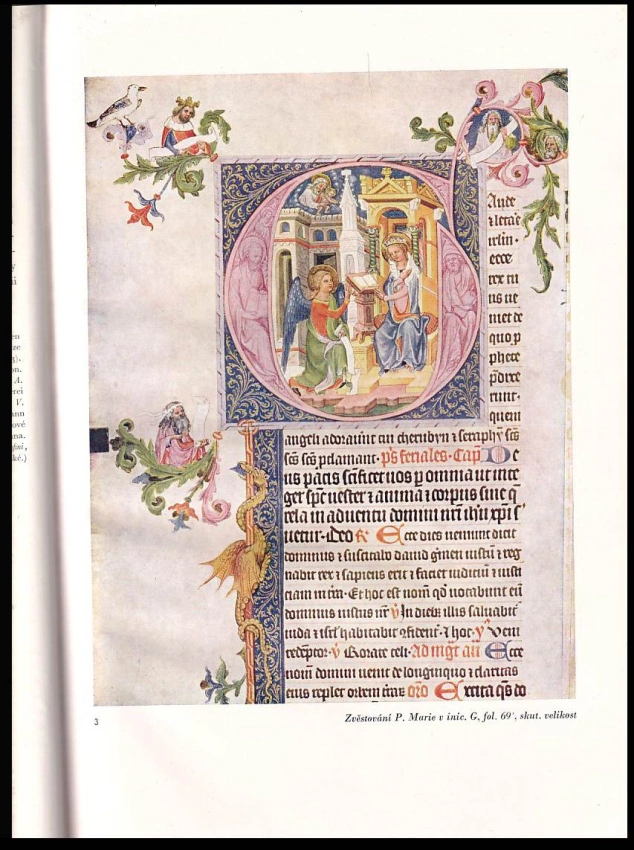 Aude
ecce
rex
quo p
phete
pdixe
runt·
quem
angeli adorant cui cherubyn ⁊ seraphyn scs
scs scs pclamant· ps feriales· Cap De
us pacis scificet uos p omnia ut inte
ger spc uester ⁊ anima ⁊ corpus sine q
rela in aduentu domini nri ihu xpi s'
uetur· deo Ecce dies ueniunt dicit
dominus ⁊ suscitabo dauid gmen iustu ⁊ reg
nabit rex ⁊ sapiens erit ⁊ faciet iudiciu ⁊ iusti
ciam in tra· Et hoc est nom qd uocabunt eu
dominus iustus nr V In dieb illis saluabit
iuda ⁊ isrl habitabit gfident' ⁊ hoc· V Veni
redeptor· V Rorate celi· Ad mgt an Ecce
nom domini uenit de longinquo ⁊ claritas
eius replet orbem tras oro Excita qs do
3
Zvěstování P. Marie v inic. G, fol. 69', skut. velikost
en
ze
on.
A.
rei
V.
ann
ové
na.
ké.)